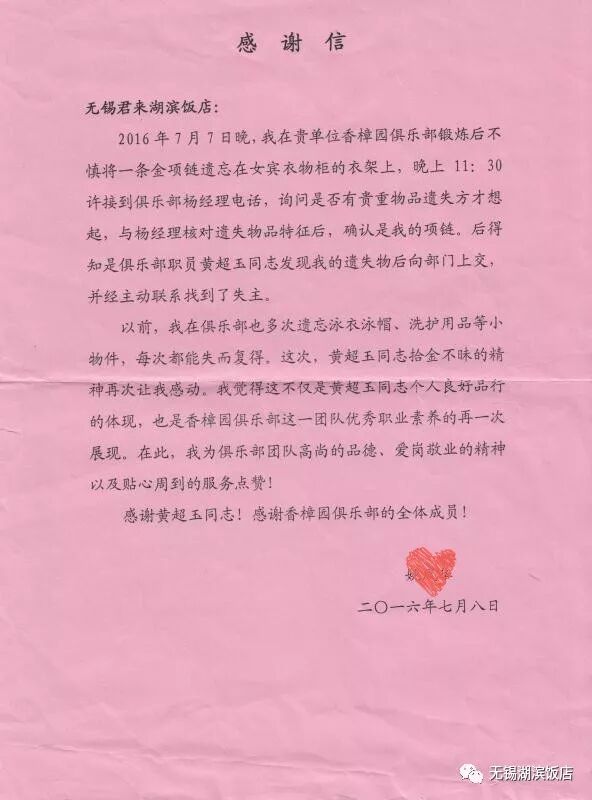 感谢信
无锡君来湖滨饭店：
2016年7月7日晚，我在贵单位香樟园俱乐部锻炼后不
慎将一条金项链遗忘在女宾衣物柜的衣架上，晚上 11：30
许接到俱乐部杨经理电话，询问是否有贵重物品遗失方才想
起，与杨经理核对遗失物品特征后，确认是我的项链。后得
知是俱乐部职员黄超玉同志发现我的遗失物后向部门上交，
并经主动联系找到了失主。
以前，我在俱乐部也多次遗忘泳衣泳帽、洗护用品等小
物件，每次都能失而复得。这次，黄超玉同志拾金不昧的精
神再次让我感动。我觉得这不仅是黄超玉同志个人良好品行
的体现，也是香樟园俱乐部这一团队优秀职业素养的再一次
展现。在此，我为俱乐部团队高尚的品德、爱岗敬业的精神
以及贴心周到的服务点赞！
感谢黄超玉同志！感谢香樟园俱乐部的全体成员！
二〇一六年七月八日
无锡湖滨饭店